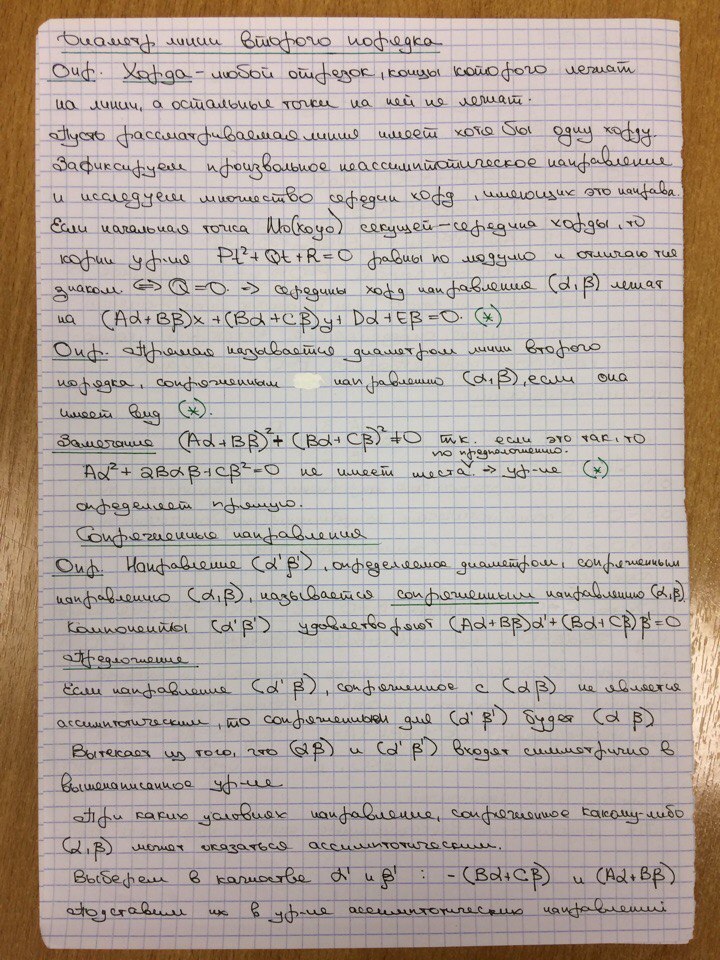 Диаметр линии второго порядка
Опр. Хорда - любой отрезок, концы которого лежат
на линии, а остальные точки на ней не лежат.
Пусть рассматриваемая линия имеет хотя бы одну хорду.
Зафиксируем произвольное неассимптотическое направление
и исследуем множество середин хорд, имеющих это направл.
Если начальная точка M₀(x₀y₀) секущей - середина хорды, то
корни ур-ия Pt²+Qt+R=0 равны по модулю и отличаются
знаком. ⇔ Q=0. ⇒ середины хорд направления (α,β) лежат
на (Aα+Bβ)x+(Bα+Cβ)y+Dα+Eβ=0. (*)
Опр. Прямая называется диаметром линии второго
порядка, сопряженным направлению (α,β), если она
имеет вид (*).
Замечание (Aα+Bβ)²+(Bα+Cβ)²≠0 т.к. если это так, то
по предположению.
Aα²+2Bαβ+Cβ²=0 не имеет места ⇒ ур-ие (*)
определяет прямую.
Сопряженные направления
Опр. Направление (α'β'), определяемое диаметром, сопряженным
направлению (α,β), называется сопряженным направлению (α,β).
Компоненты (α'β') удовлетворяют (Aα+Bβ)α'+(Bα+Cβ)β'=0
Предложение
Если направление (α'β'), сопряженное с (αβ) не является
ассимптотическим, то сопряженным для (α'β') будет (αβ)
Вытекает из того, что (αβ) и (α'β') входят симметрично в
вышенаписанное ур-ие
При каких условиях направление, сопряженное какому-либо
(α,β) может оказаться ассимптотическим.
Выберем в качестве α' и β' : -(Bα+Cβ) и (Aα+Bβ)
Подставим их в ур-ие ассимптотических направлений